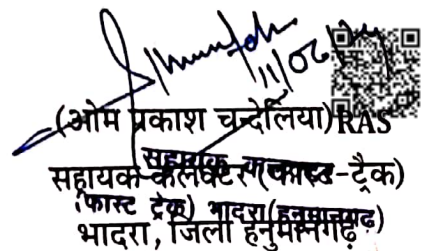 11/06/24
(ओम प्रकाश चन्देलिया) RAS
सहायक कलेक्टर (फास्ट-ट्रैक)
(फास्ट ट्रेक) भादरा (हनुमानगढ़)
भादरा, जिला हनुमानगढ़